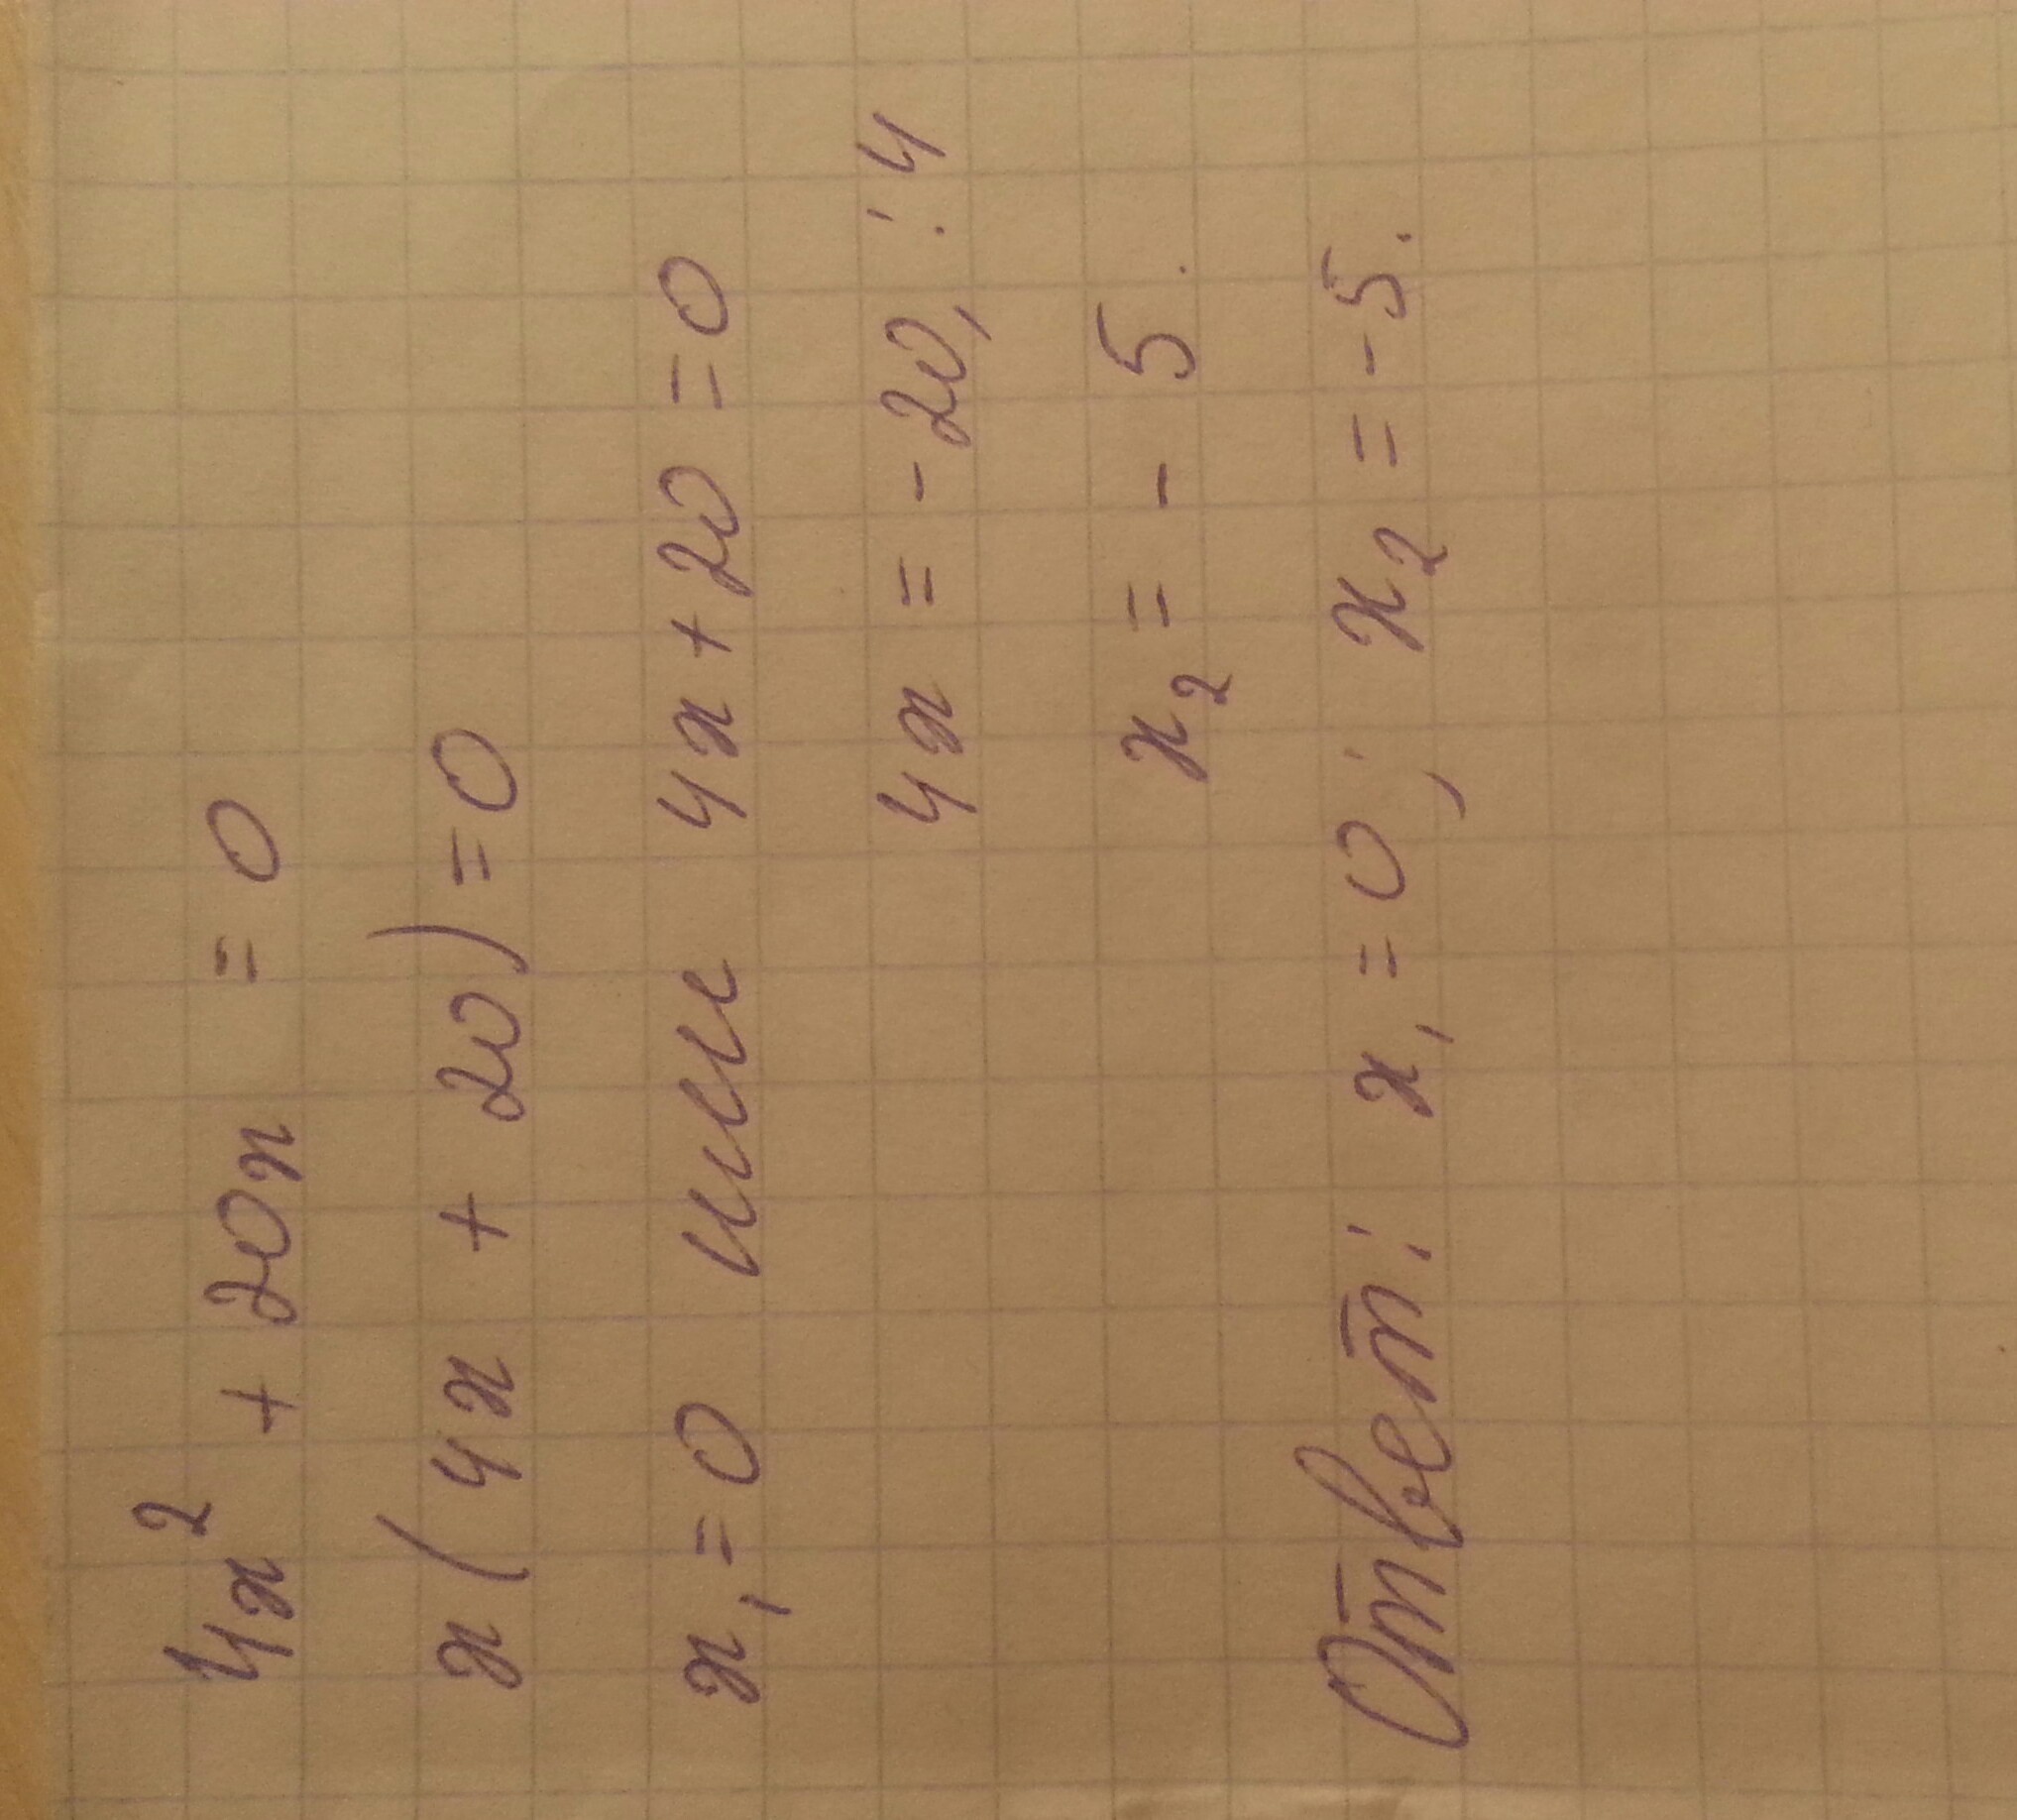 4x² + 20x = 0
x(4x + 20) = 0
x₁ = 0 или 4x + 20 = 0
4x = -20, :4
x₂ = - 5.
Ответ: x₁ = 0; x₂ = -5.